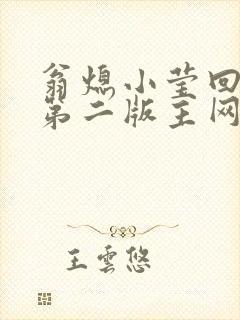 翁熄小莹回
第二版主网
王雲悠